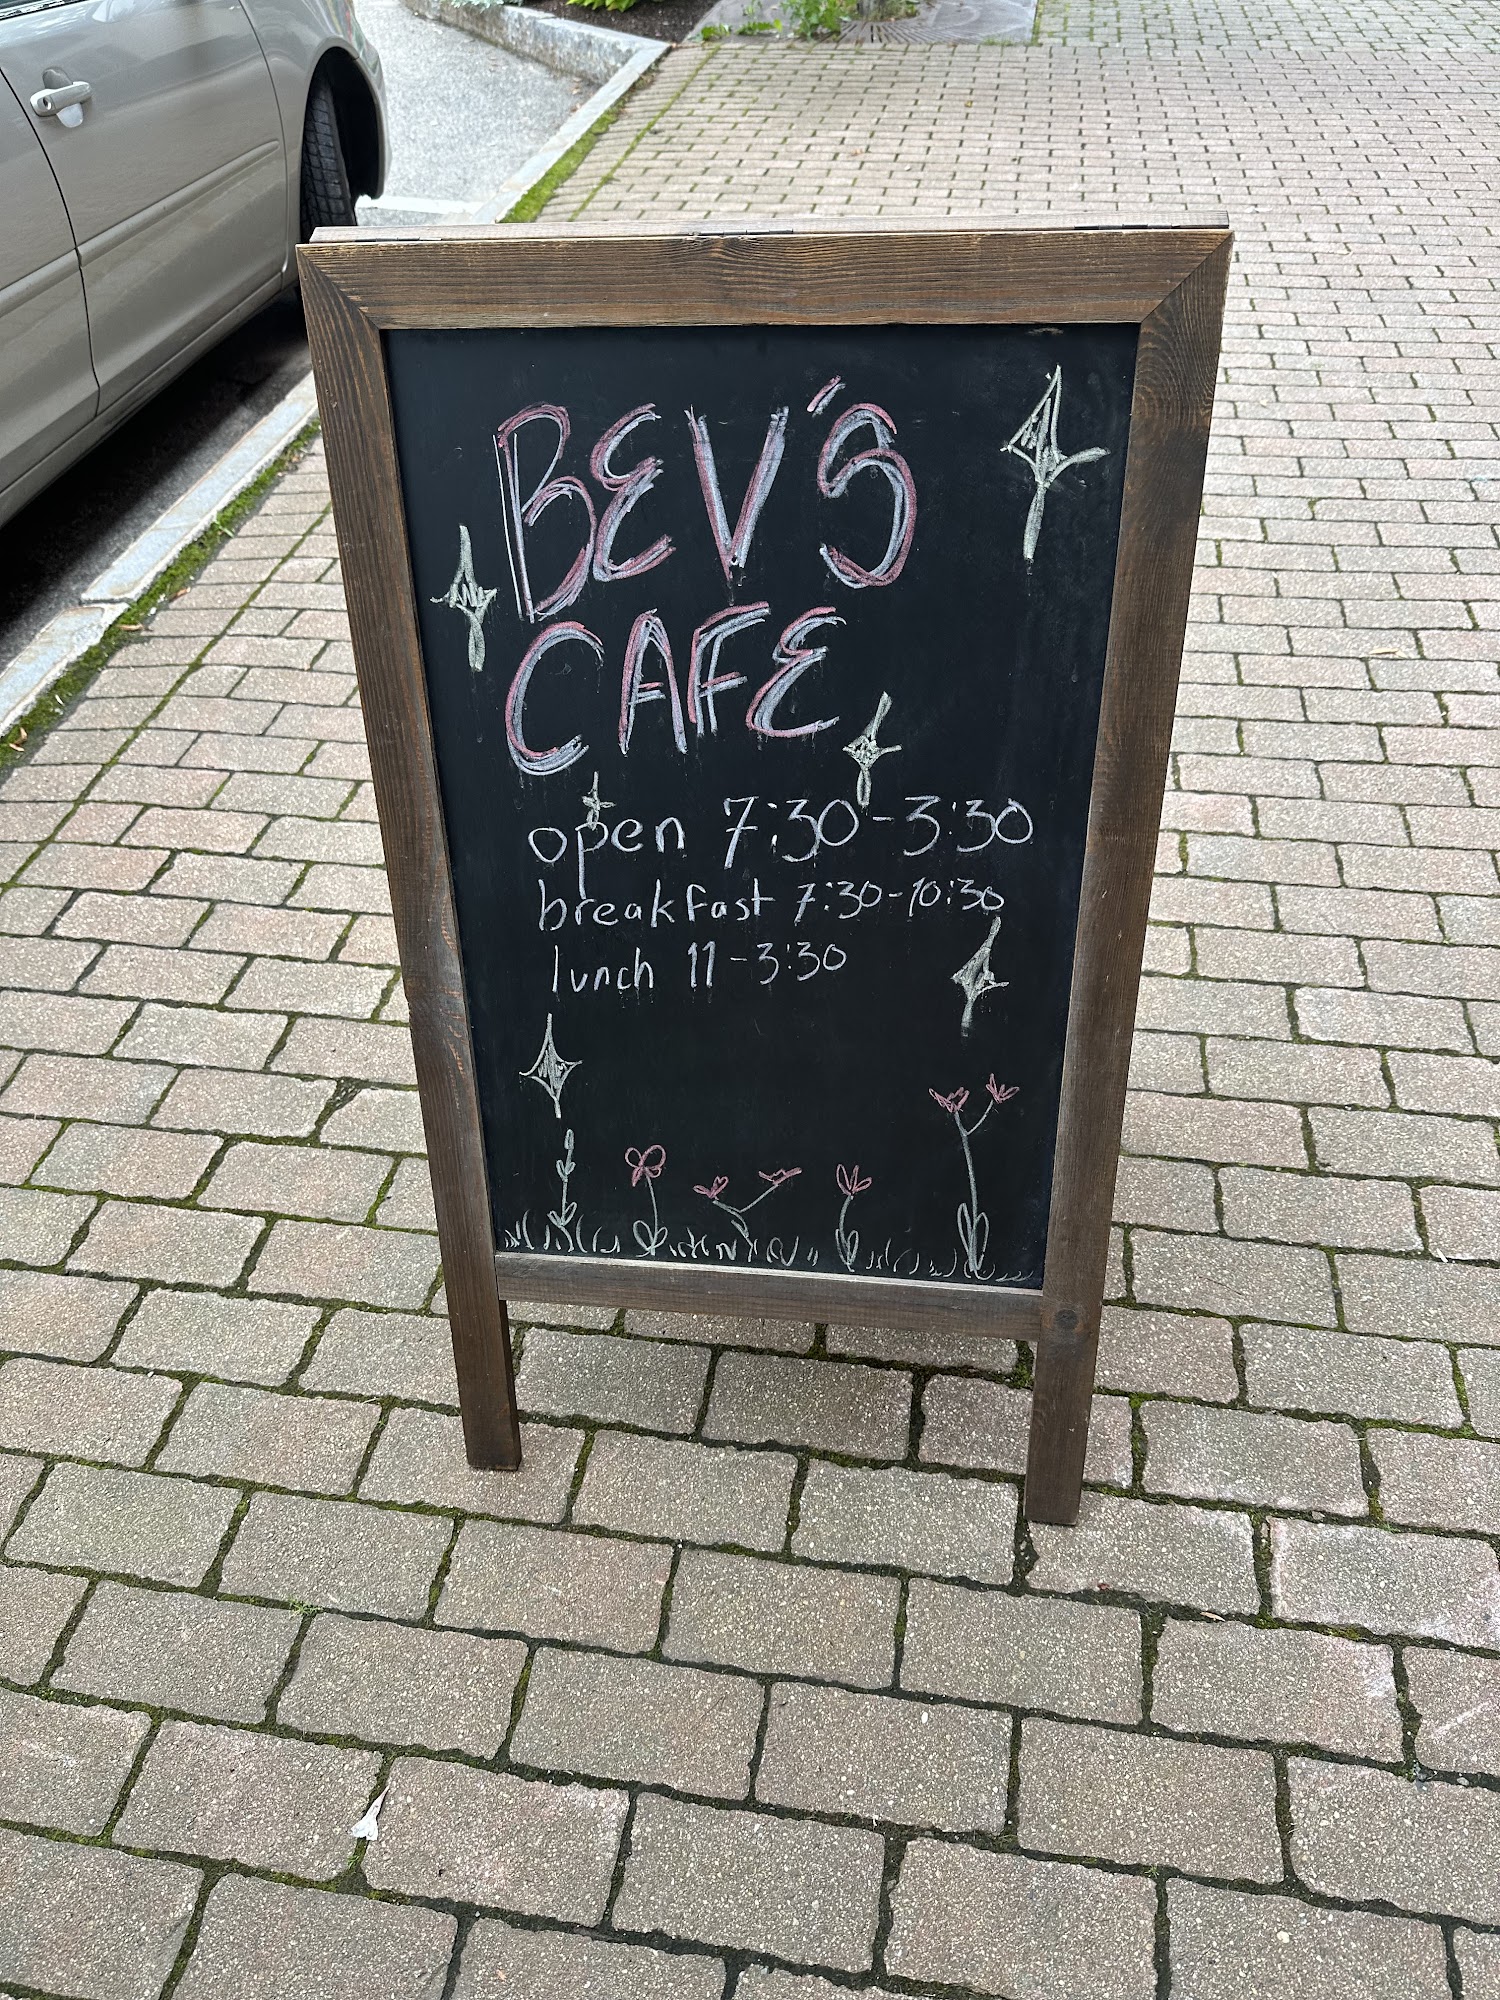 BEV'S
CAFE
open 7:30-3:30
breakfast 7:30-10:30
lunch 11-3:30